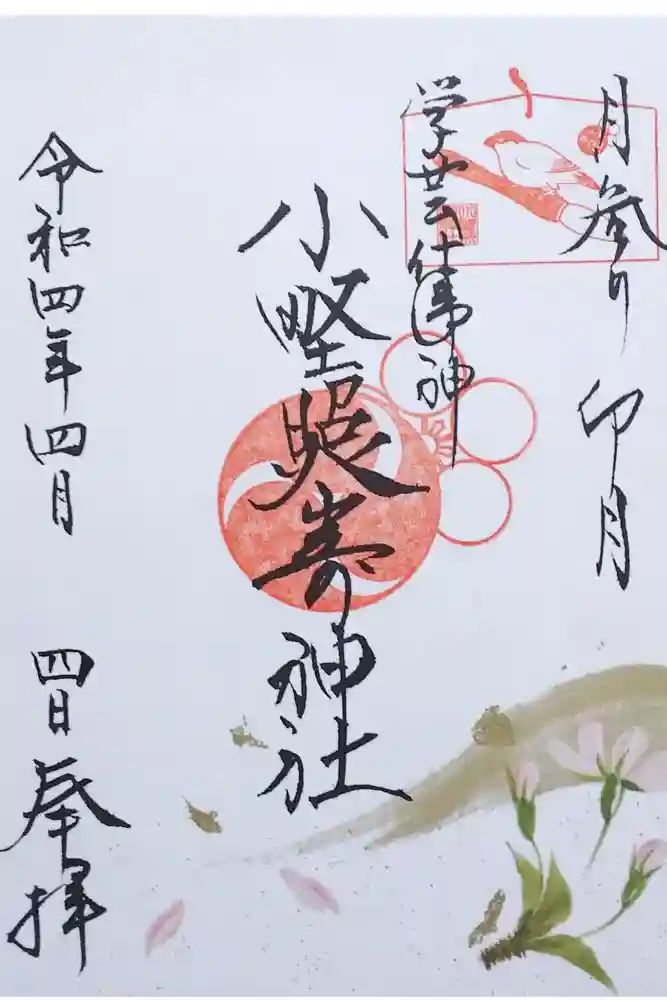 月参り 卯月
学芸仕事神
小野照嵜神社
令和四年四月 四日 奉拝